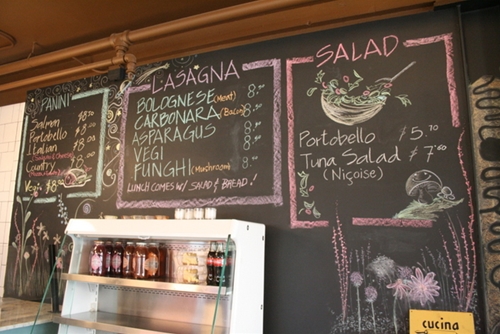 PANINI
Salman $8.70
Portobello
Italian
Country
Vegi
LASAGNA
BOLOGNESE (Meat) 8.50
CARBONARA (Bacon) 8.50
ASPARAGUS 8.50
VEGI 8.50
FUNGHI (Mushroom) 8.50
LUNCH COMES W/ SALAD & BREAD!
SALAD
Portobello $ 5.70
Tuna Salad $ 7.60
(Niçoise)
cucina